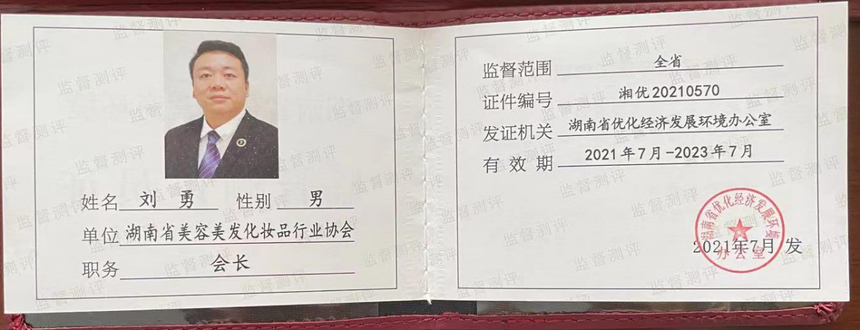 姓名 刘勇 性别 男
单位 湖南省美容美发化妆品行业协会
职务 会长
监督范围 全省
证件编号 湘优20210570
发证机关 湖南省优化经济发展环境办公室
有效期 2021年7月-2023年7月
湖南省优化经济发展环境
办公室
2021年7月 发
监督测评